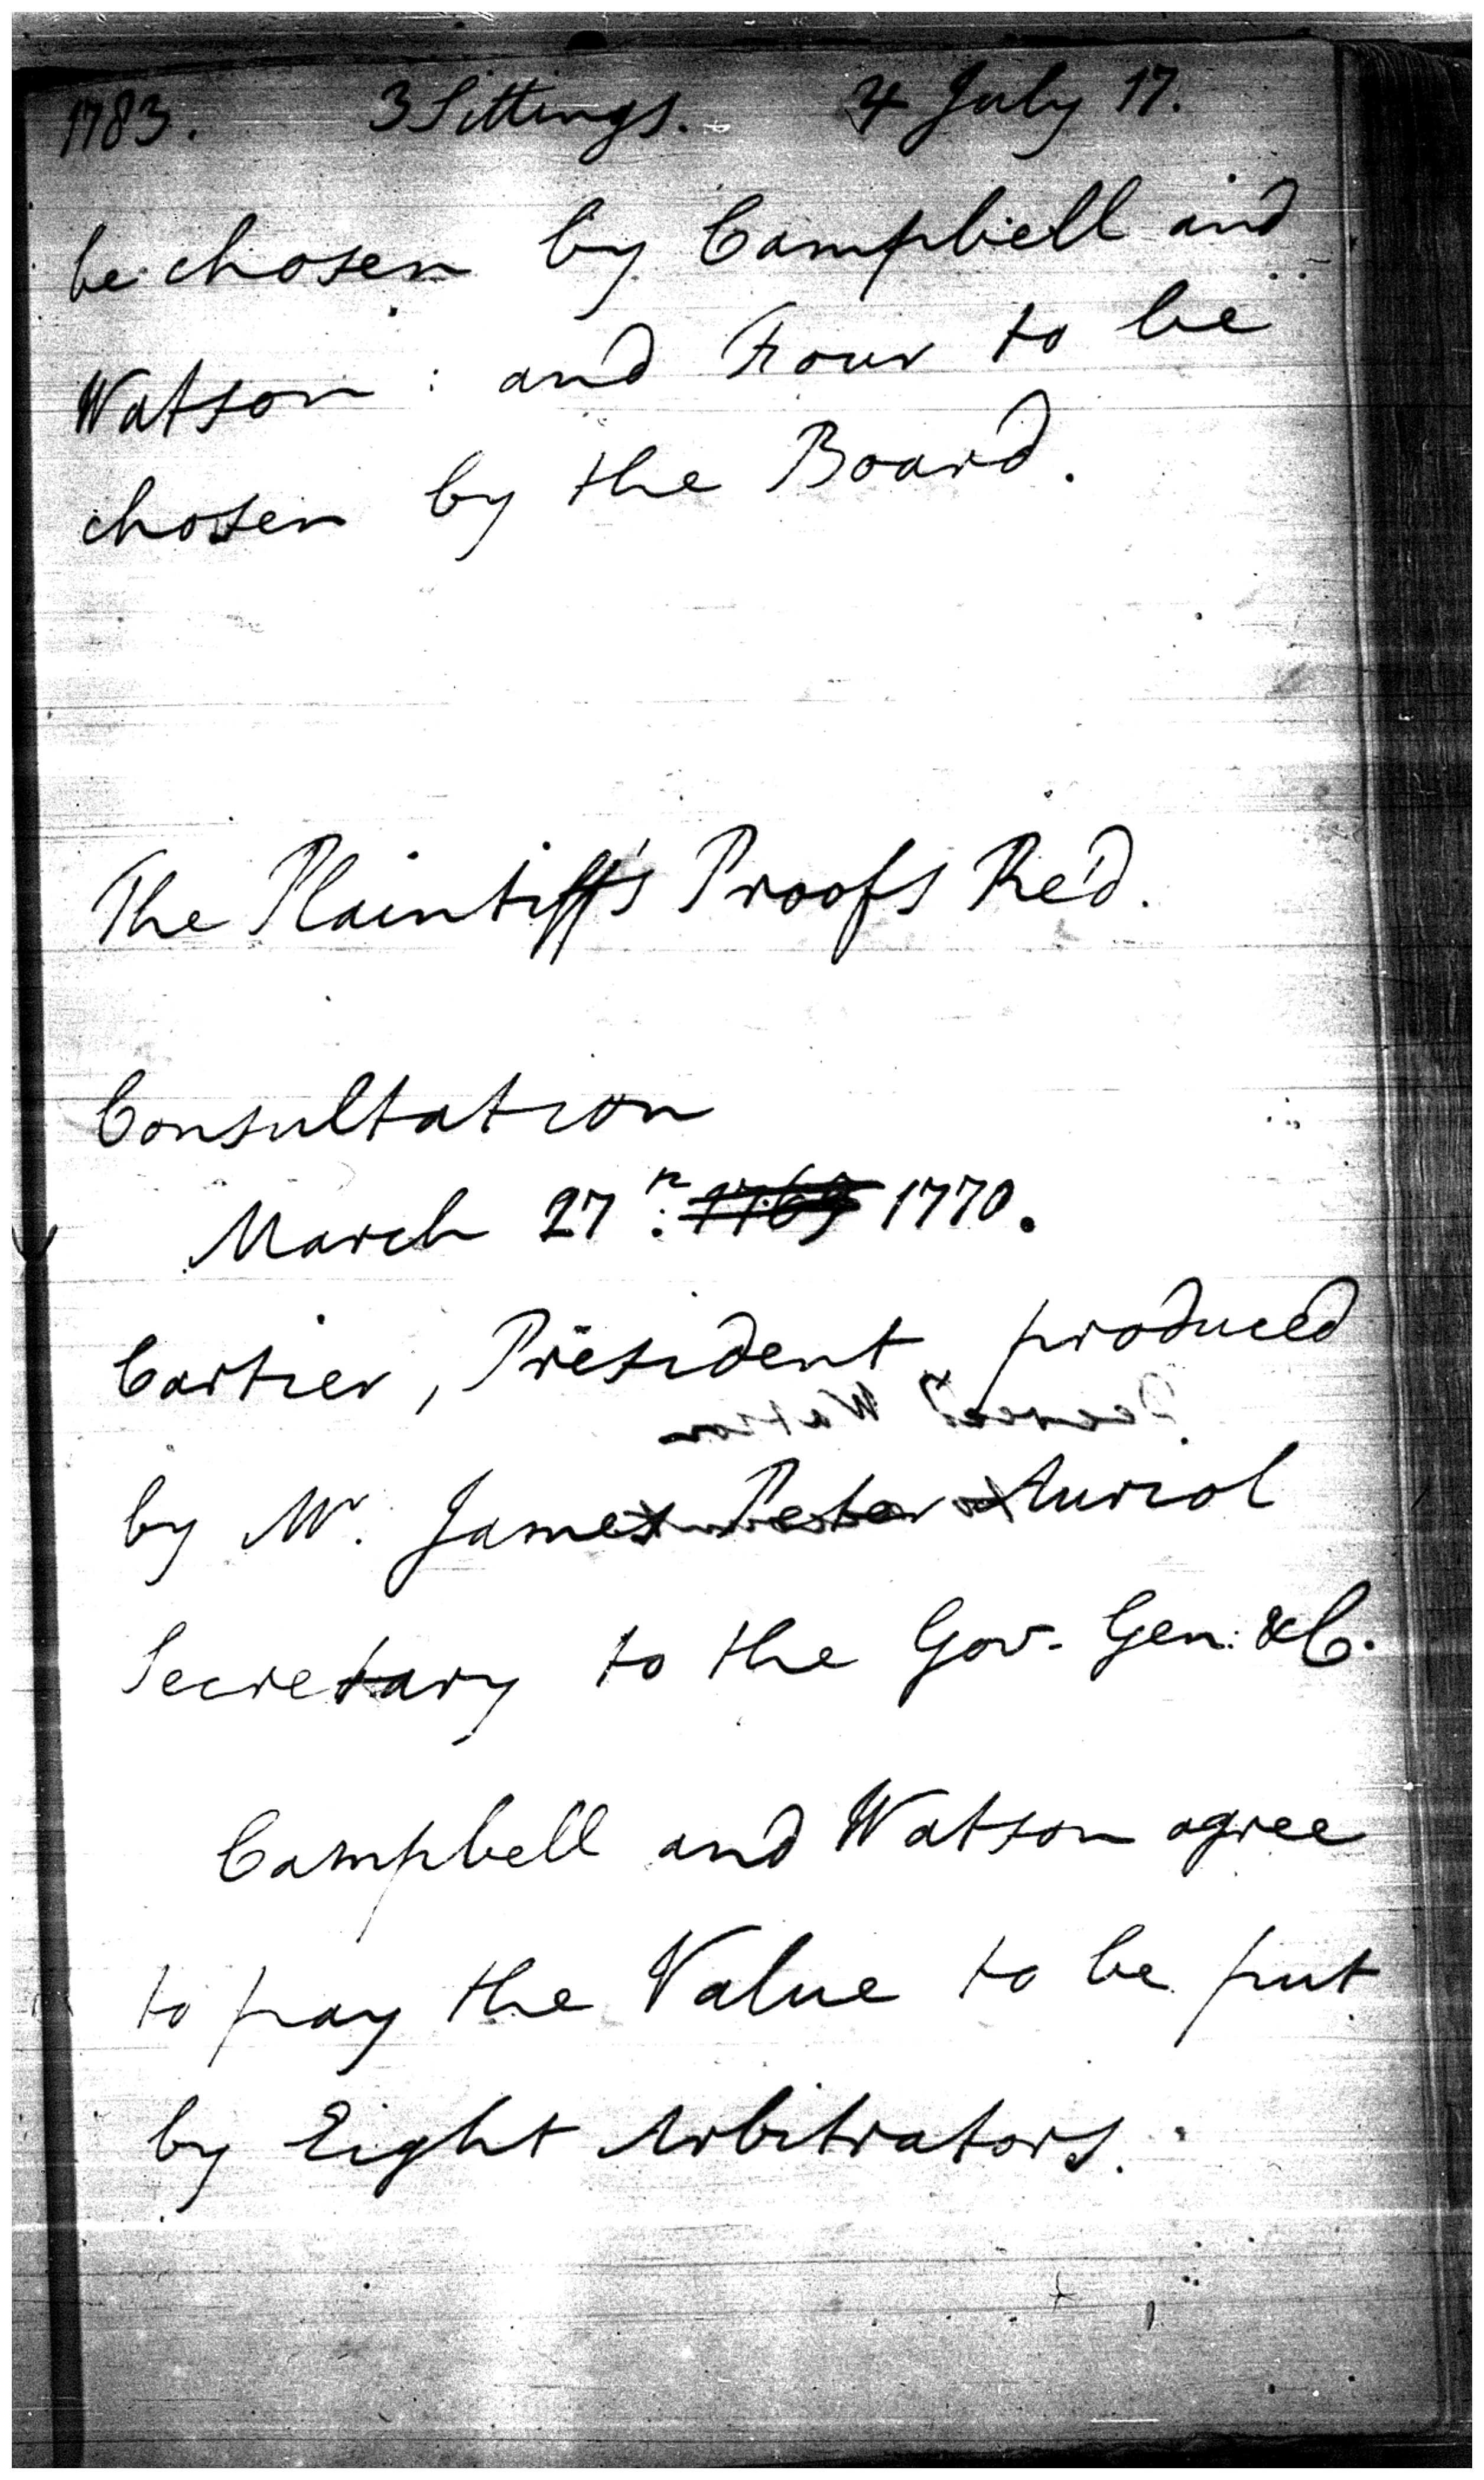 1783. 3 Sittings. 4 July 17.
be chosen by Campbell and
Watson : and Four to be
chosen by the Board.
The Plaintiff's Proofs Re'd.
Consultation
March 27th: 1769 1770.
Cartier, President, produced
by Mr. James Peter Auriol
Secretary to the Gov. Gen: & C.
Campbell and Watson agree
to pay the Value to be put
by Eight Arbitrators.